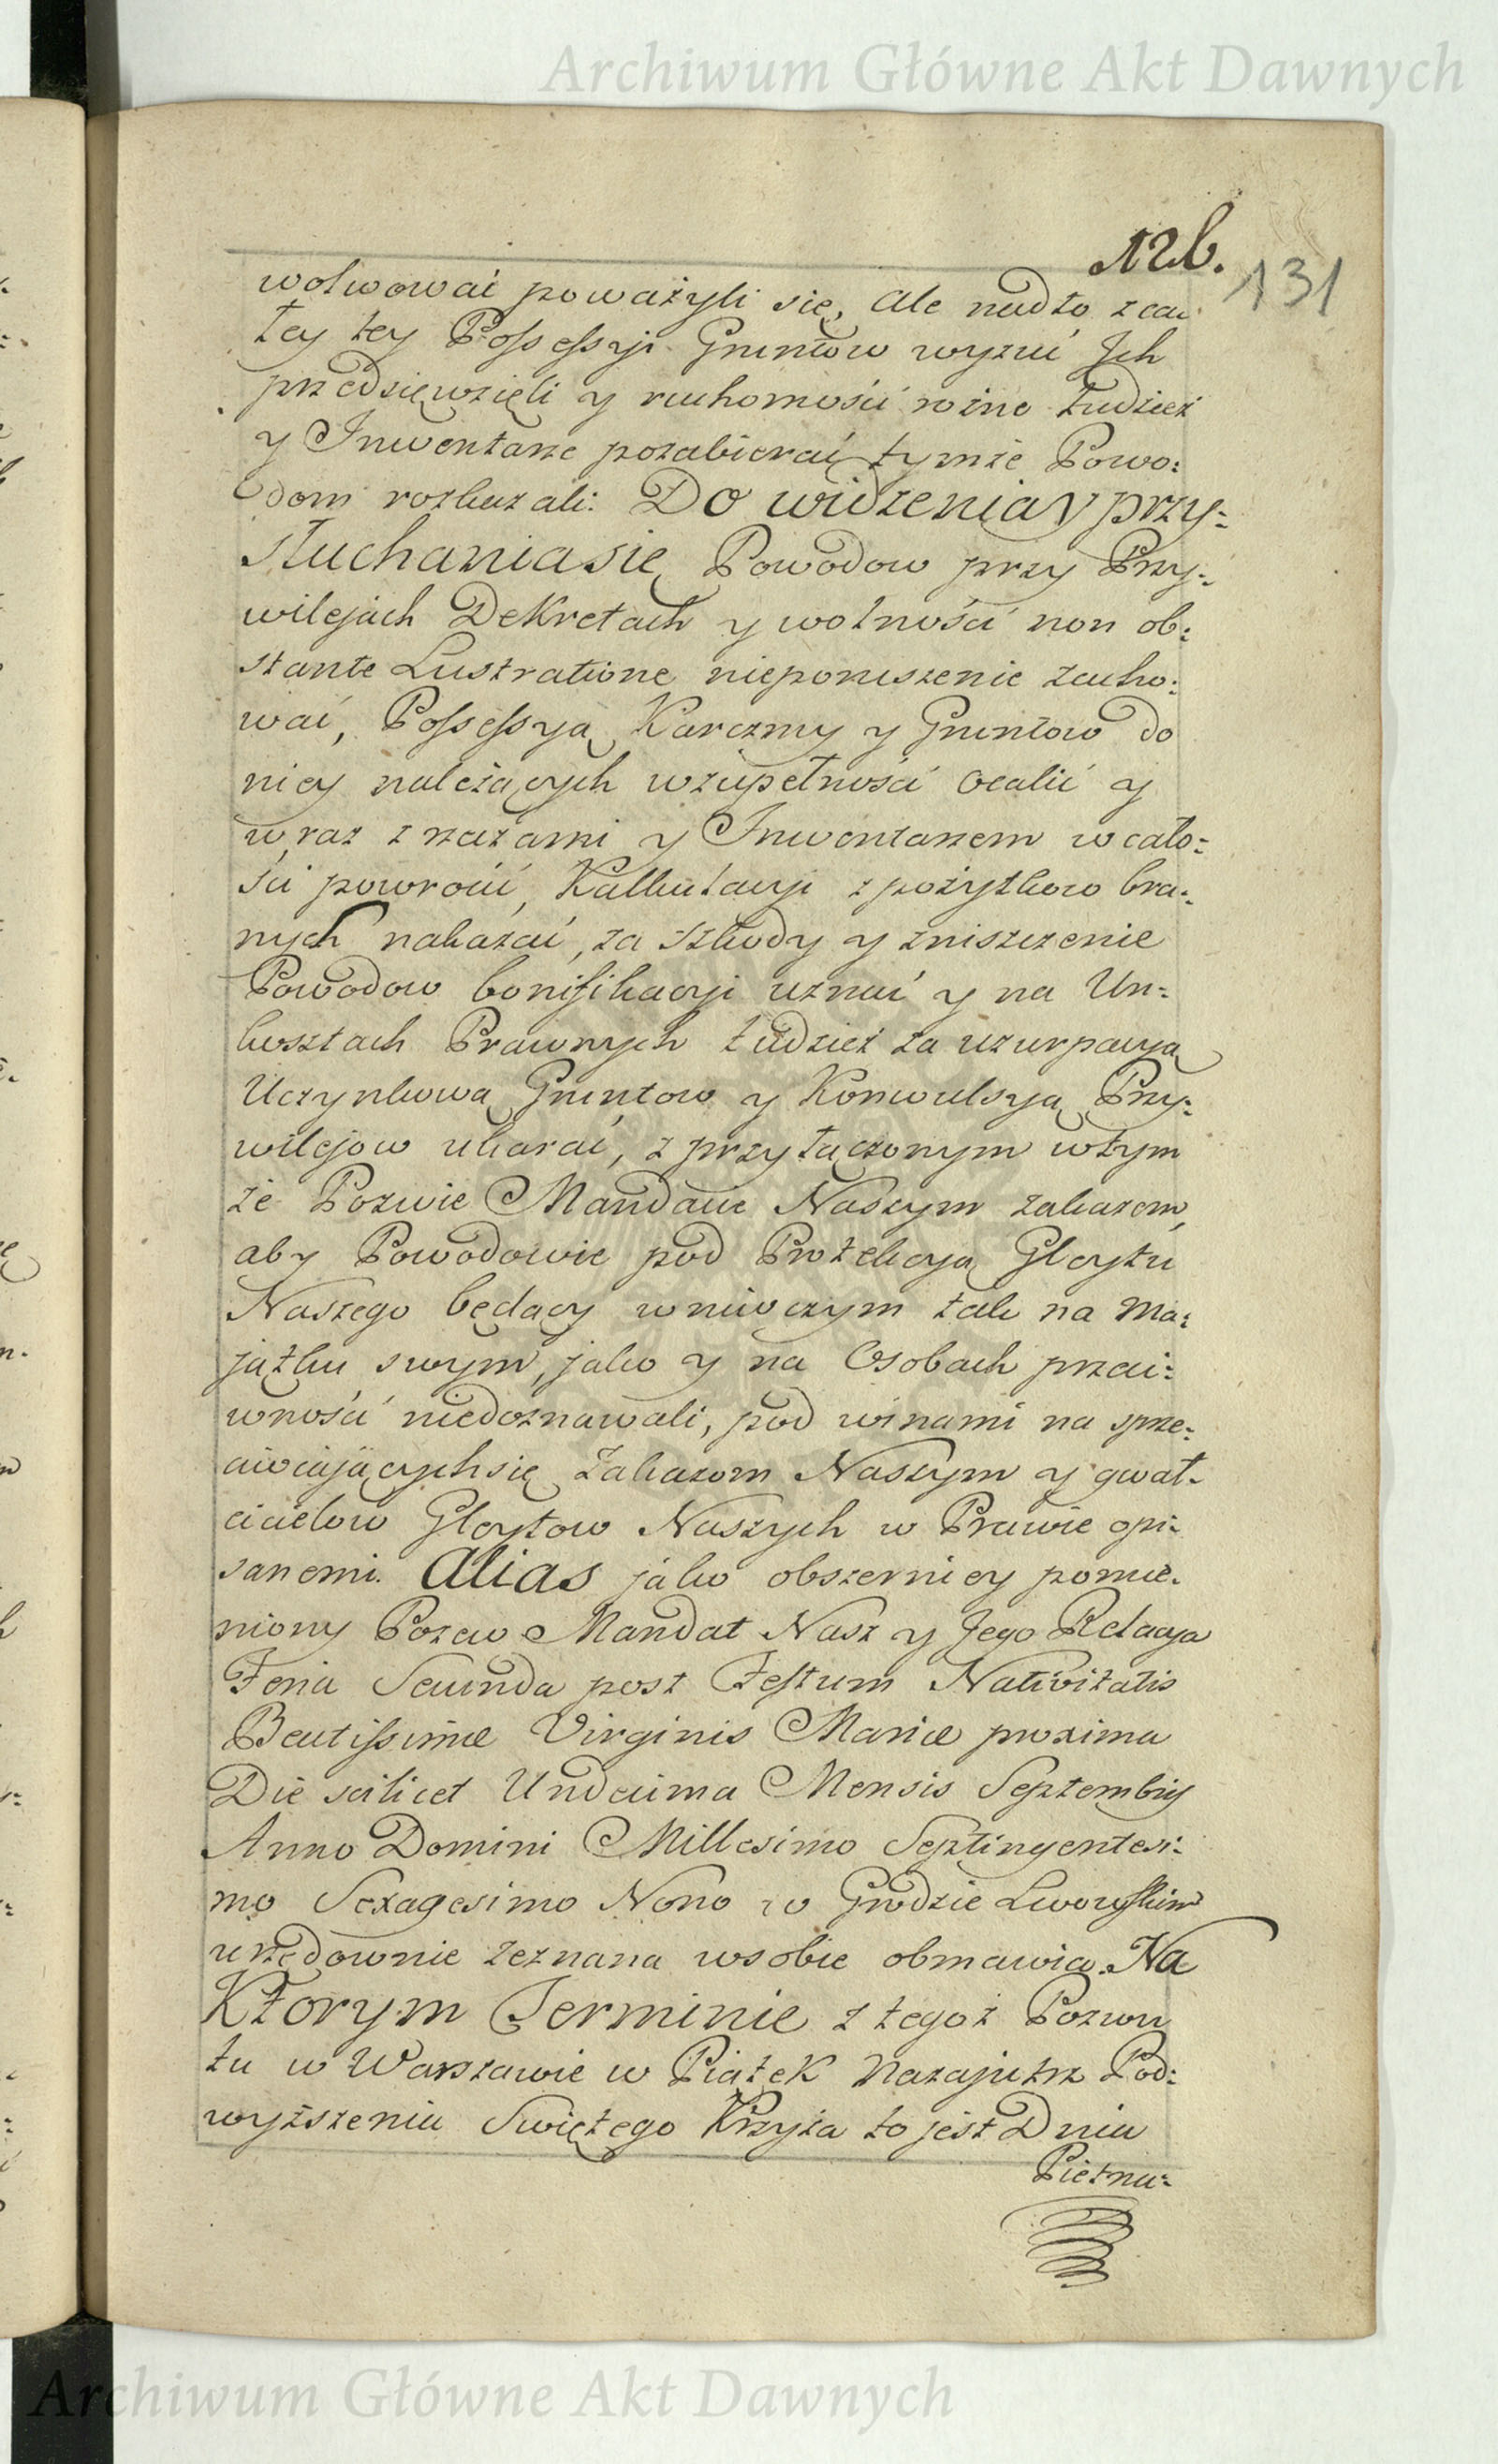 Archiwum Główne Akt Dawnych
126.
131
wolwować poważyli się, ale nadto z ca:
łey tey Possessyi Gruntow wyzuć Ich
przedsięwzięli y ruchomości rożne tudzież
y Inwentarze pozabierać tymże Powo:
dom rozkazali: Do widzenia y przy:
słuchania się Powodow przy Przy:
wilejach Dekretach y wolności non ob:
stante Lustratione nieporuszenie zacho:
wać, Possessyą Karczmy y Gruntow do
niey należących w zupełności ocalić y
wraz z rzeczami y Inwentarzem w cało:
ści powrócić, Kalkulacyi z pożytkow bra:
nych nakazać, za szkody y zniszczenie
Powodow bonifikacyi uznać y na Un:
kosztach Prawnych tudzież za uzurpacyą
Uczynkową Gruntow y Konwulsyą Przy:
wilejow ukarać, z przyłączonym w tym
że Pozwie Mandacie Naszym zakazem,
aby Powodowie pod Protekcyą Gleytu
Naszego będący w niwczym tak na Ma:
jątku swym, jako y na Osobach przeci:
wności niedoznawali, pod winami na sprze:
ciwiających się Zakazom Naszym y gwał:
cicielow Gleytow Naszych w Prawie opi:
sanemi. Alias jako obszerniey pomie:
niony Pozew Mandat Nasz y Jego Relacya
Feria Secunda post Festum Nativitatis
Beatissimæ Virginis Mariæ proxima
Die scilicet Undecima Mensis Septembris
Anno Domini Millesimo Septingentesi:
mo Sexagesimo Nono w Grodzie Lwowskim
urzędownie zeznana w sobie obmawia. Na
Ktorym Terminie z tegoż Pozwu
tu w Warszawie w Piątek nazajutrz Pod:
wyższenia Swiętego Krzyża to jest Dnia
Pietna:
Archiwum Główne Akt Dawnych